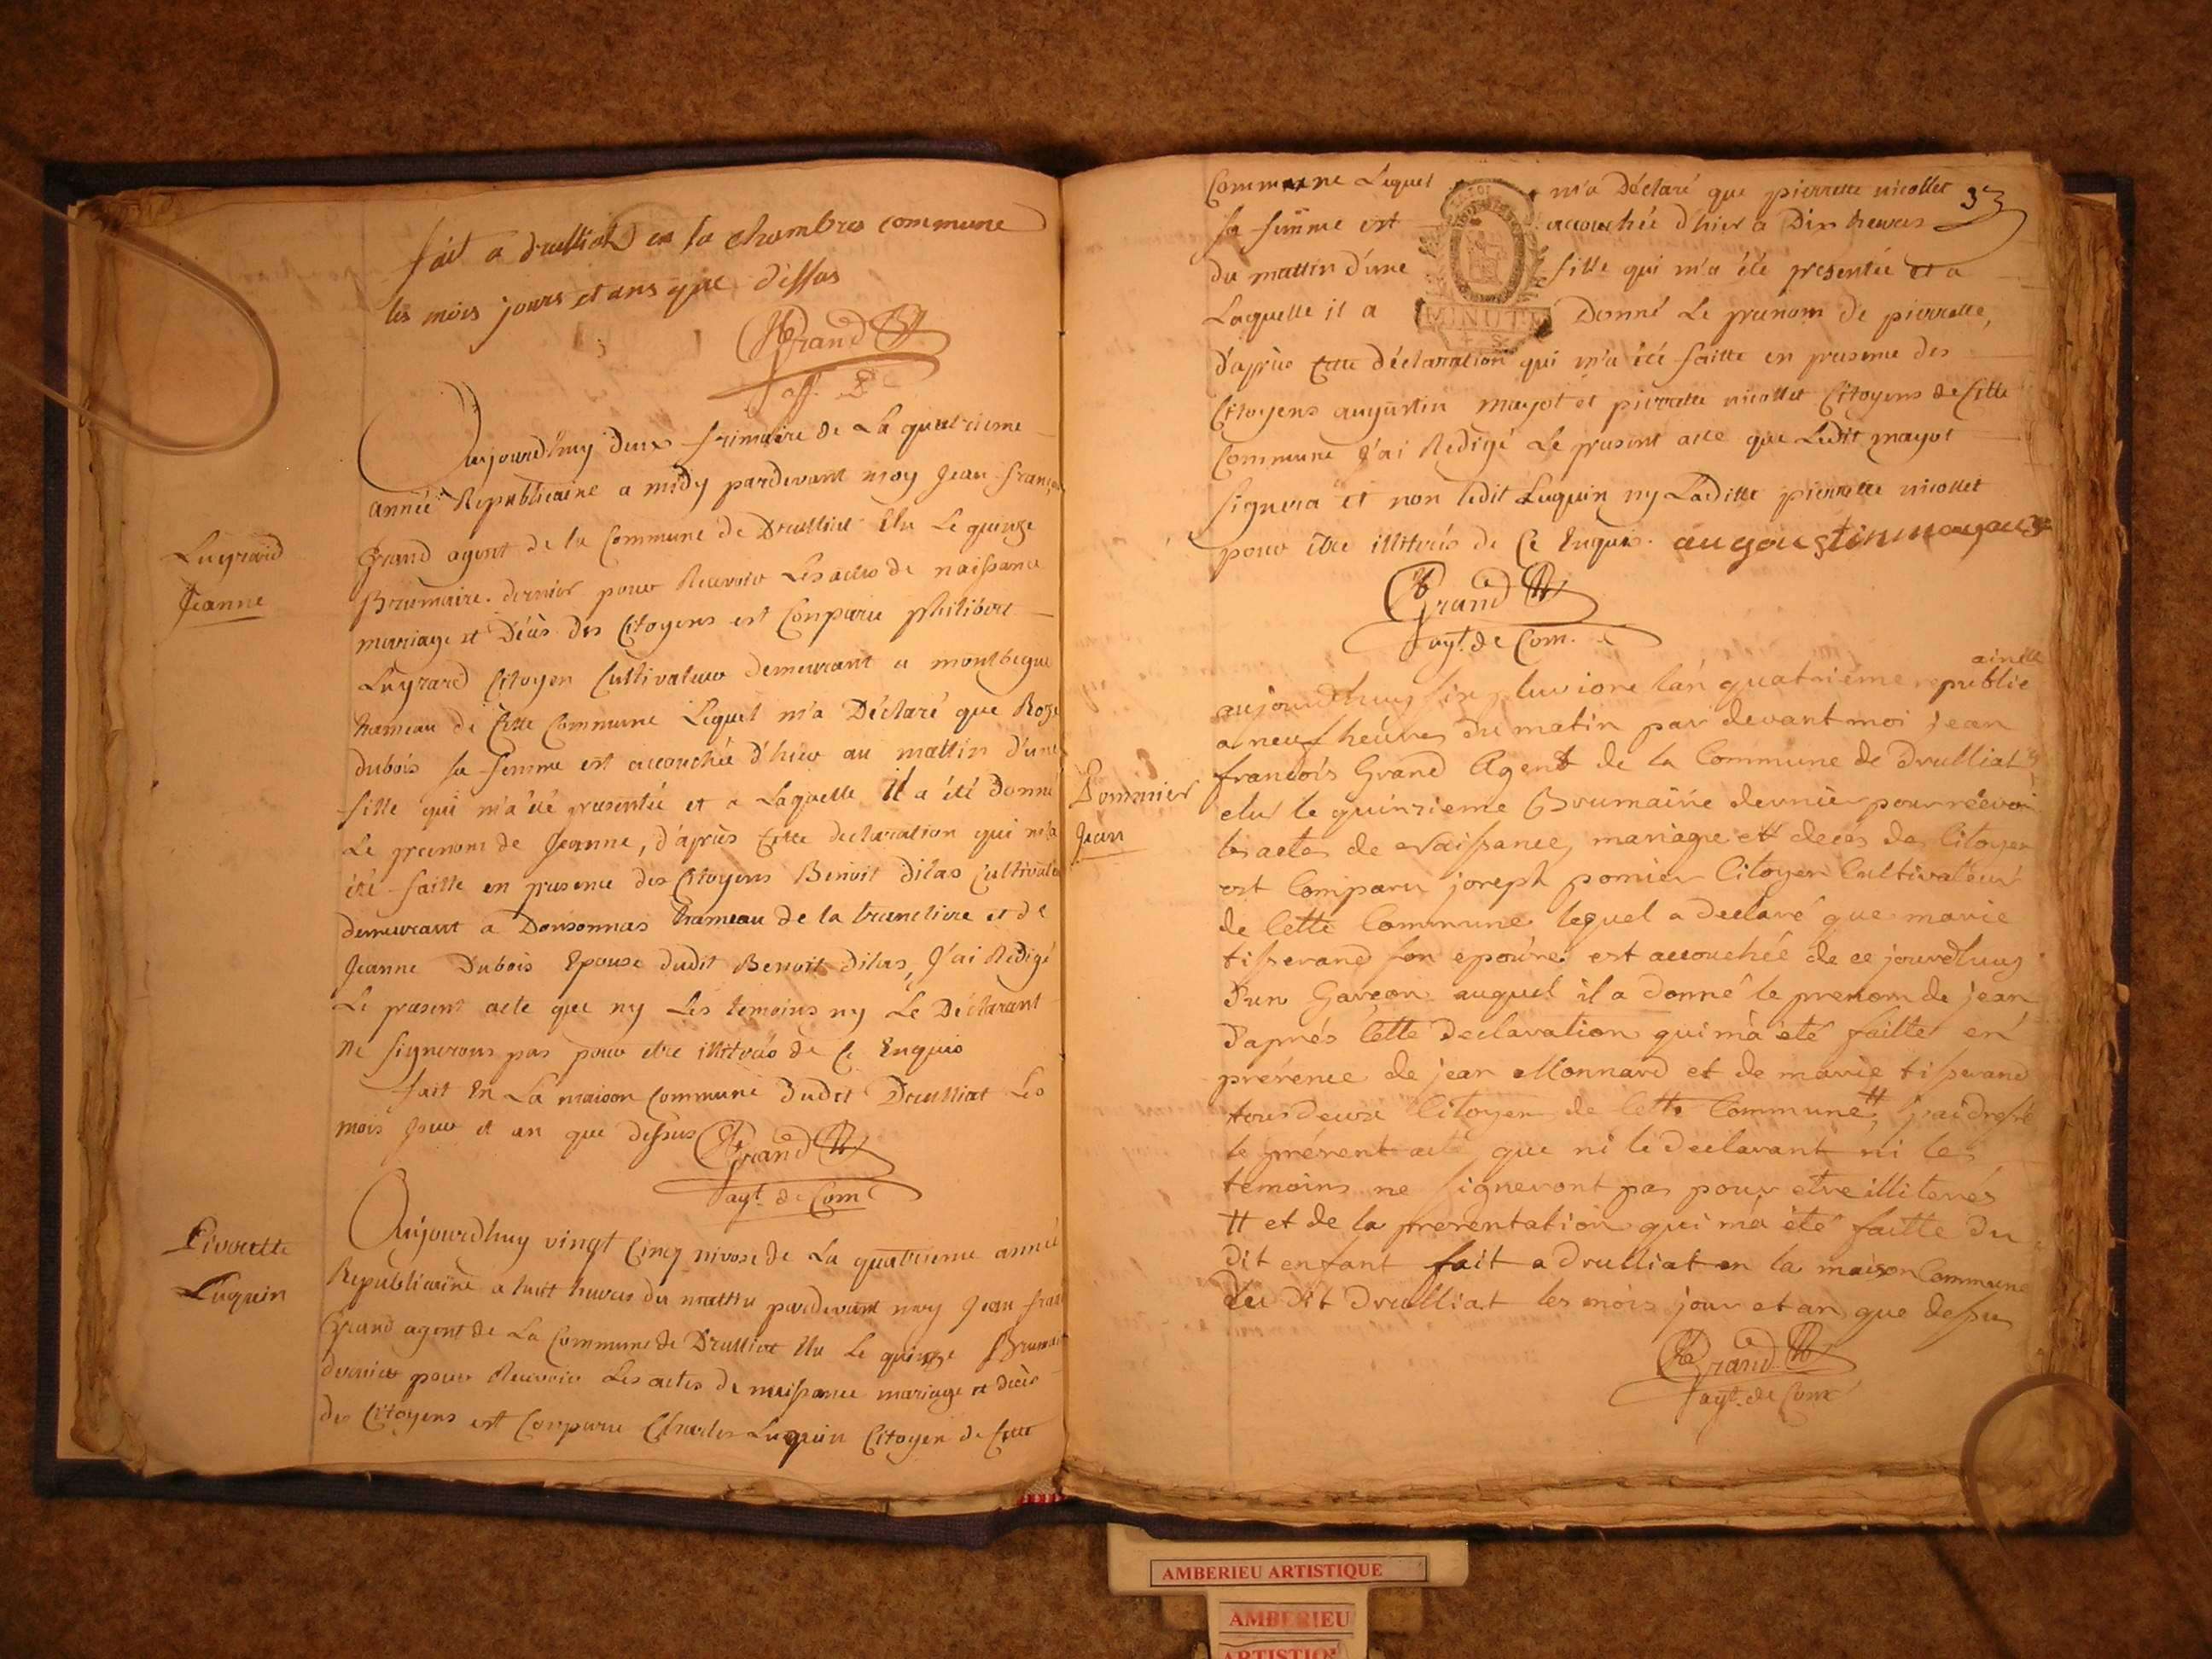 fait a drulliat en la chambre commune
les mois jours et ans que dessus
Grand
off. P.
Aujourdhuy deux frimaire de La quatrieme
année Republicaine a midy pardevant moy Jean françois
Lugrand
Jeanne
Grand agent de la Commune de Drulliat Elu Le quinze
Brumaire dernier pour Recevoir Les actes de naissance
mariage et Décès des Citoyens est Comparu philibert
Lugrand Citoyen Cultivateur demeurant a montbegue
hameau de Cette Commune Lequel m'a Déclaré que Roze
dubois sa femme est accouchée d'hier au mattin d'une
fille qui m'a été presentée et a Laquelle il a été Donné
Le prenom de Jeanne, d'après Cette declaration qui m'a
été faitte en presence des Citoyens Benoit dilas Cultivateur
demeurant a Donsonnas hameau de la trancliere et de
Jeanne Dubois Epouse dudit Benoit dilas, J'ai Redigé
Le present acte que ny Les temoins ny Le Déclarant
ne signerons pas pour etre illiterés de Ce Enquis
fait En La maison Commune Dudit Drulliat Les
mois jour et an que dessus Grand
agt. de Com
Pierrette
Luquin
Aujourdhuy vingt Cinq nivose de La quatrieme année
Republicaine a huit heures du mattin pardevant moy Jean fran
Grand agent de La Commune de Drulliat Elu Le quinze Brumaire
dernier pour Recevoir Les actes de naissance mariage et décès
des Citoyens est Comparu Charles Luquin Citoyen de Cette
Commune Lequel m'a Déclaré que pierrette nicollet
33
sa femme est accouchée d'hier a Dix heures
du mattin d'une fille qui m'a été presentée et a
Laquelle il a Donné Le prenom de pierrette,
MINUTE
d'après Cette déclaration qui m'a été faitte en presence des
Citoyens augustin mayot et pierrette nicollet Citoyens de Cette
Commune J'ai Redigé Le present acte que Ledit mayot
signera et non ledit Luquin ny Laditte pierrette nicollet
pour être illiterés de Ce Enquis. augoustin
Grand
agt. de Com.
aujourdhuy six pluviose l'an quatriéme republic
ainé
a neuf heures du matin par devant moi jean
Pommier
Jean
francois Grand Agent de la Commune de Drulliat
elu le quinzieme Brumaire dernier pour recevoir
les actes de Naissance, mariage et deces des Citoyen
est Comparu joseph pomier Citoyen Cultivateur
de Cette Commune lequel a declaré que marie
tisserand son epouse est accouchée de ce jourdhuy
d'un Garçon auquel il a donné le prenom de jean
d'aprés Cette declaration qui m'a été faitte en
présence de jean Monnard et de marie tisserand
tous deux Citoyen de Cette Commune #, j'ai dressé
le présent acte que ni le declarant ni les
temoins ne signeront pas pour etre illiterés
# et de la presentation qui m'a été faitte du
dit enfant fait a Drulliat en la maison Commune
du dit Drulliat les mois jour et an que dessus
Grand
agt. de Com
AMBERIEU ARTISTIQUE
AMBERIEU
ARTISTIQ